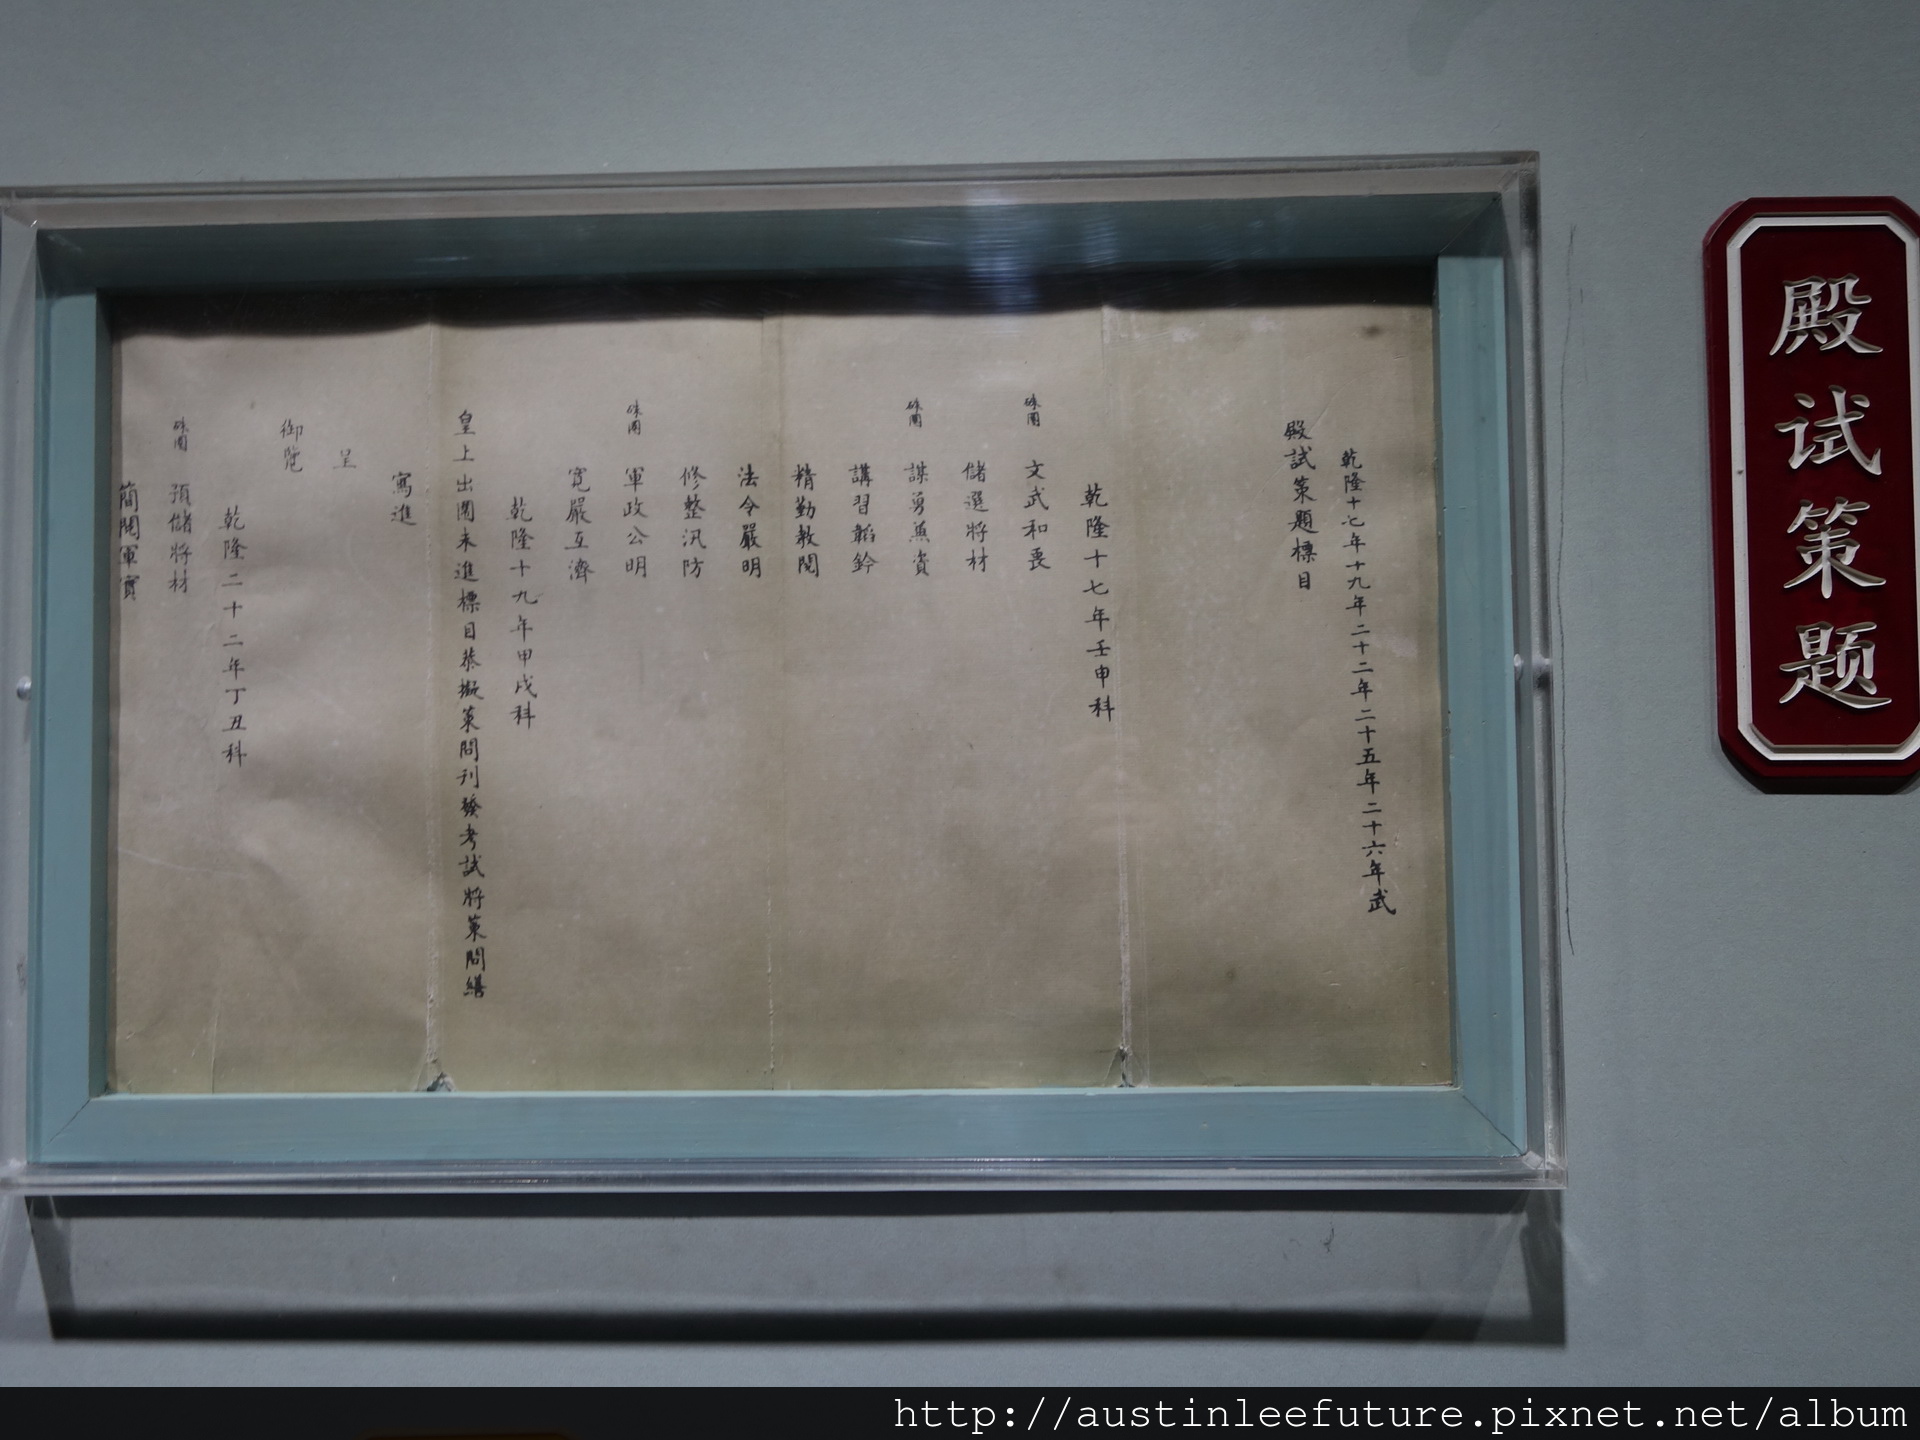 殿试策题
乾隆十七年十九年二十二年二十五年二十六年武
殿試策題標目
乾隆十七年壬申科
硃圈 文武和衷
儲選將材
硃圈 謀勇兼資
講習韜鈐
精勤教閱
法令嚴明
修整汛防
硃圈 軍政公明
寬嚴互濟
乾隆十九年甲戌科
皇上出圍未進標目恭擬策問刊發考試將策問繕
寫進
呈
御覽
乾隆二十二年丁丑科
硃圈 預儲將材
簡閱軍實
http://austinleefuture.pixnet.net/album